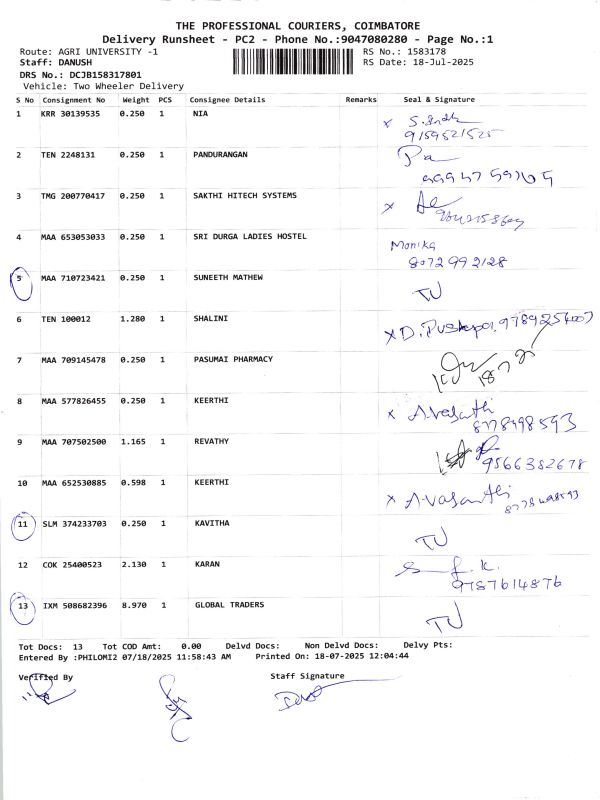 THE PROFESSIONAL COURIERS, COIMBATORE
Delivery Runsheet - PC2 - Phone No.:9047080280 - Page No.:1
Route: AGRI UNIVERSITY -1 RS No.: 1583178
Staff: DANUSH RS Date: 18-Jul-2025
DRS No.: DCJB158317801
Vehicle: Two Wheeler Delivery
S No Consignment No Weight PCS Consignee Details Remarks Seal & Signature
1 KRR 30139535 0.250 1 NIA x
9159521525
2 TEN 2248131 0.250 1 PANDURANGAN
3 TMG 200770417 0.250 1 SAKTHI HITECH SYSTEMS x
4 MAA 653053033 0.250 1 SRI DURGA LADIES HOSTEL Monika
8072992128
5 MAA 710723421 0.250 1 SUNEETH MATHEW TU
6 TEN 100012 1.280 1 SHALINI x D.
7 MAA 709145478 0.250 1 PASUMAI PHARMACY
8 MAA 577826455 0.250 1 KEERTHI x A.Vasanthi
8778498593
9 MAA 707502500 1.165 1 REVATHY
9566382678
10 MAA 652530885 0.598 1 KEERTHI x A.Vasanthi
11 SLM 374233703 0.250 1 KAVITHA TU
12 COK 25400523 2.130 1 KARAN
9787614876
13 IXM 508682396 8.970 1 GLOBAL TRADERS TU
Tot Docs: 13 Tot COD Amt: 0.00 Delvd Docs: Non Delvd Docs: Delvy Pts:
Entered By :PHILOMI2 07/18/2025 11:58:43 AM Printed On: 18-07-2025 12:04:44
Verified By Staff Signature